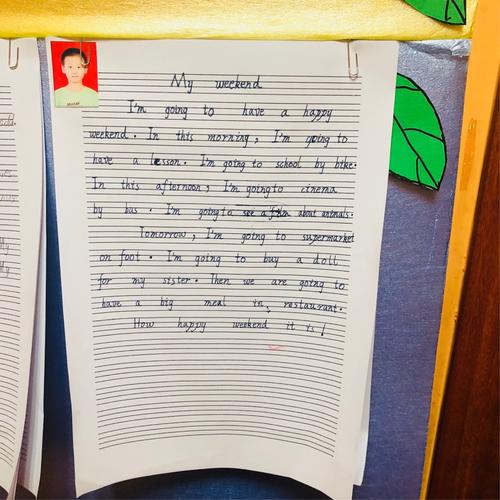 My weekend
I'm going to have a happy
weekend. In this morning, I'm going to
have a lesson. I'm going to school by bike.
In this afternoon, I'm going to cinema
by bus. I'm going to see a film about animals.
Tomorrow, I'm going to supermarket
on foot. I'm going to buy a doll
for my sister. Then we are going to
have a big meal in restaurant.
How happy weekend it is!